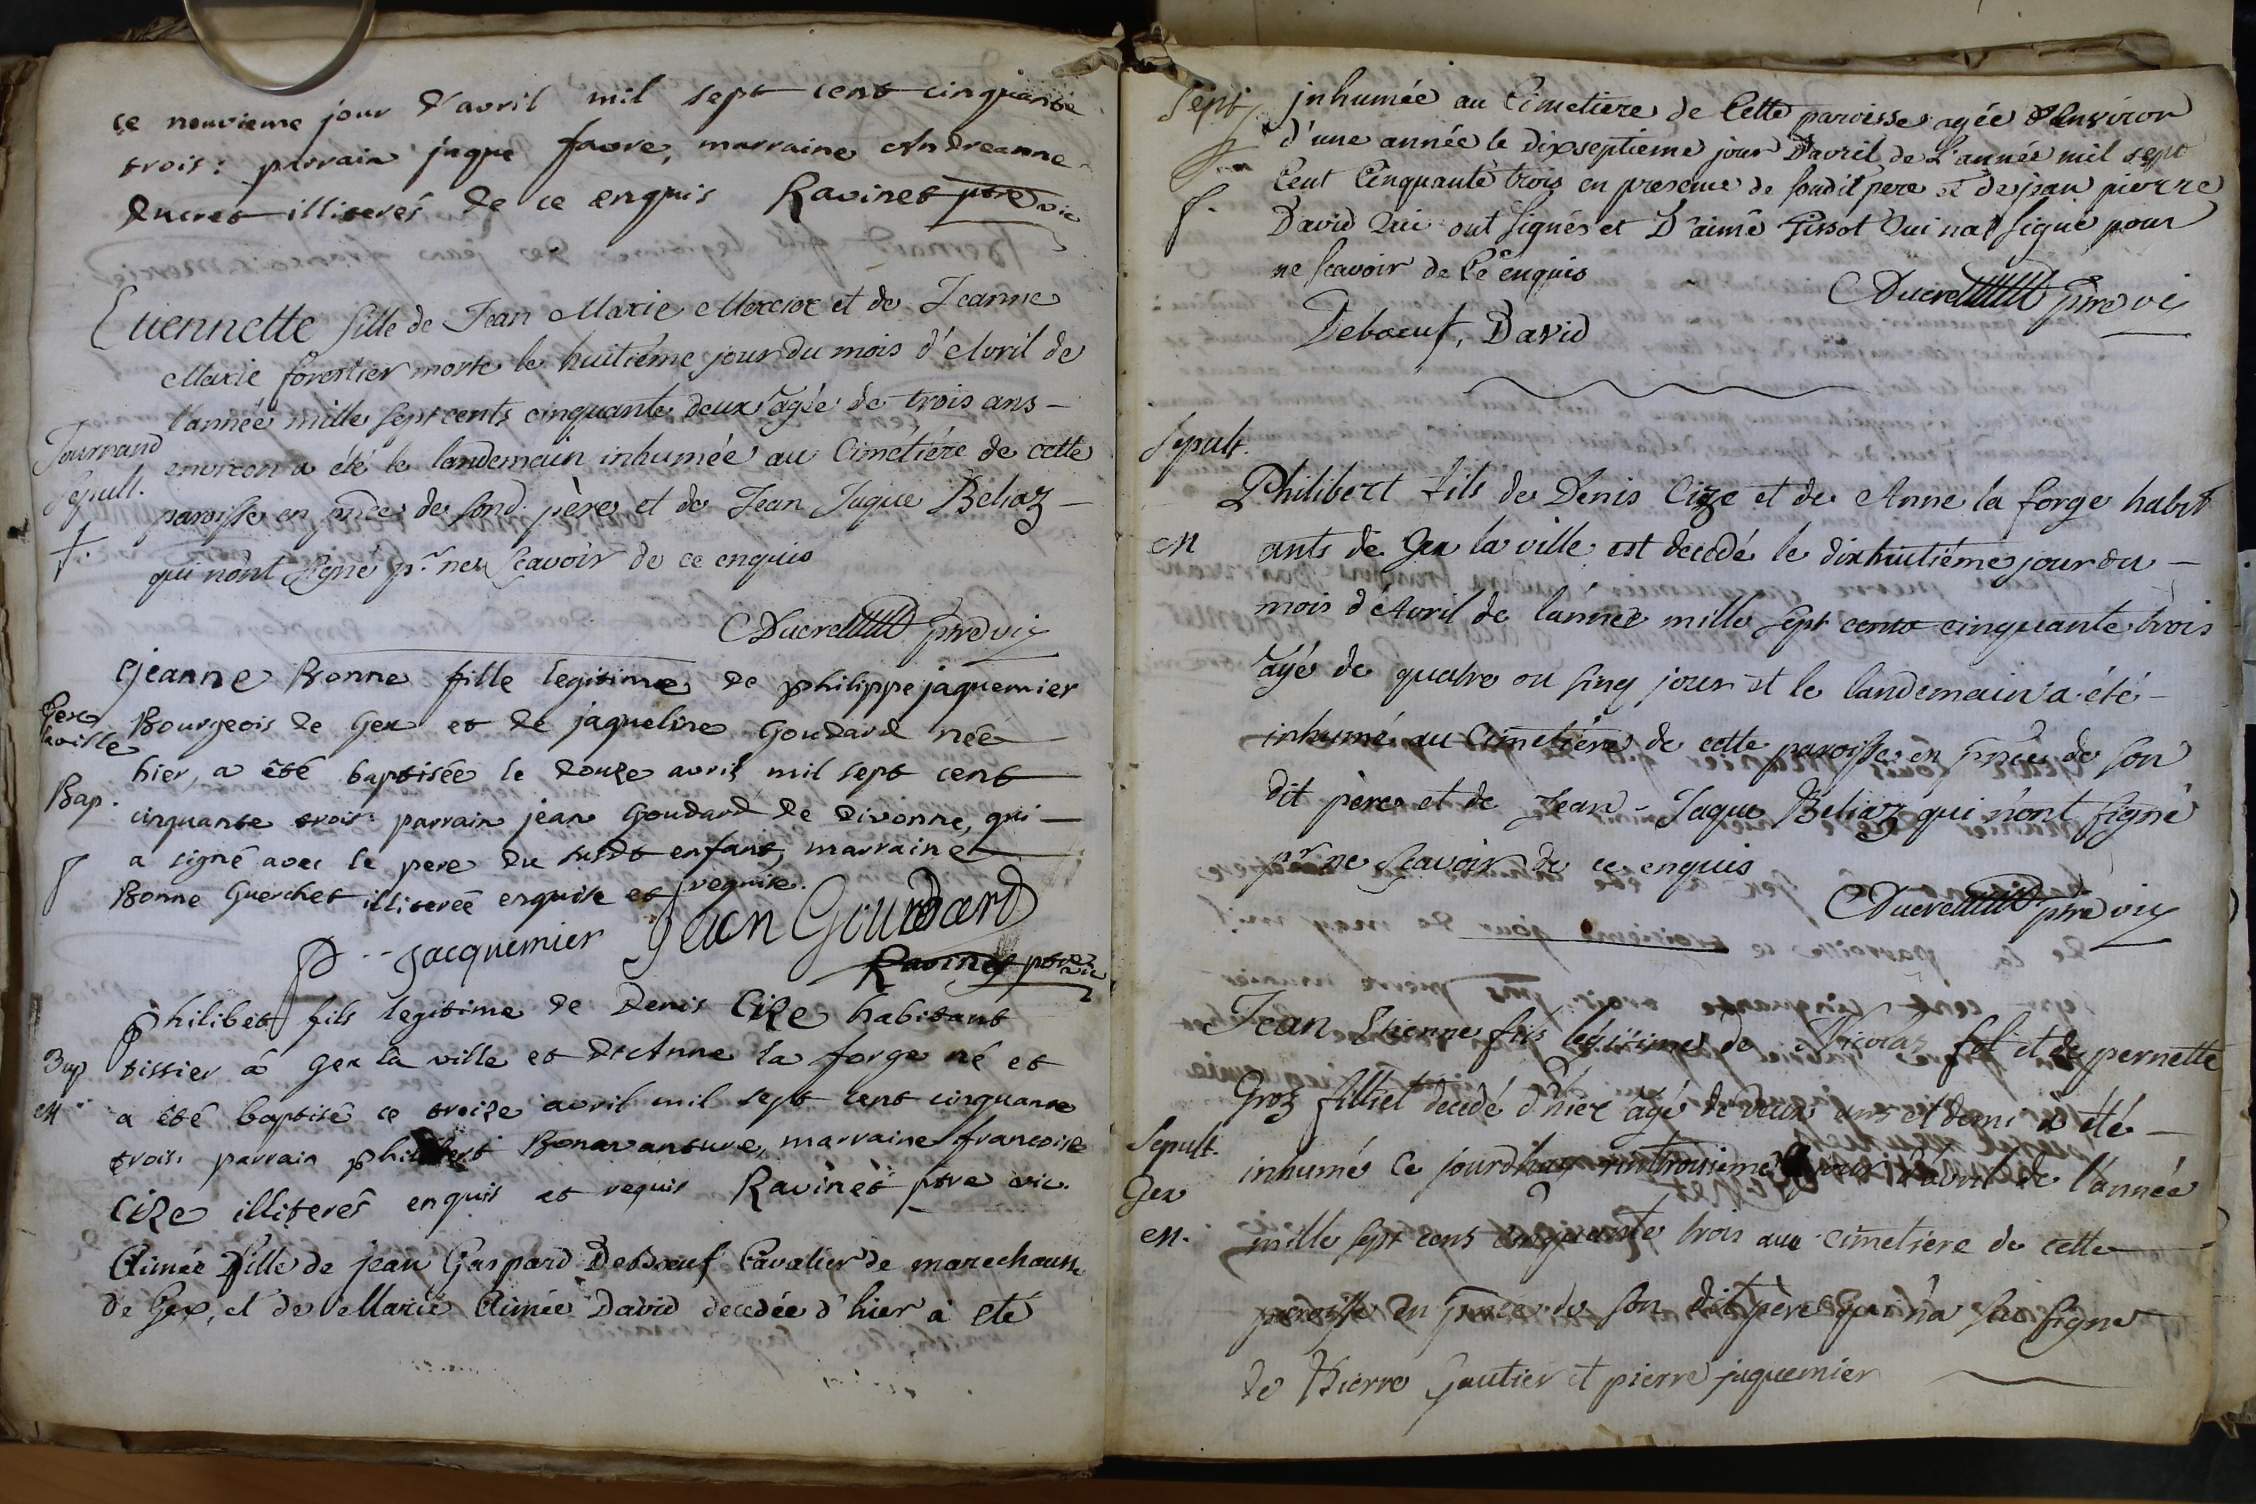 ce neuvieme jour d'avril mil sept cent cinquante
trois: parrain jaque favre, marraine Andreanne
ducret illiterés de ce enquis Ravinet ptre vic
Etiennette fille de Jean Marie Mercier et de Jeanne
Marie forestier morte le huitiéme jour du mois d'Avril de
l'année mille sept cents cinquante deux agée de trois ans -
Tournand
environ a été le landemain inhumée au Cimétiére de cette
Sepult.
paroisse en pnce de sond. père et de Jean Jaque Beliaz -
f.
qui nont signé pr. ne Scavoir de ce enquis
Ducret ptre vic
jeanne Bonne fille legitime de philippe jaquemier
Gex la ville
Bourgeois de Gex et de jaqueline Goudard née
hier, a été baptisée le douze avril mil sept cent
Bap.
cinquante trois parrain jean Goudard de Divonne, qui -
a signé avec le pere du susdt enfant, marraine
f
Bonne Guerchet illiterée enquise et requise.
P. Jacquemier Jean Gourdard
Ravinet ptre vic
Philibet fils legitime de Denis Cize habitant
Bap
tissier à Gex la ville et de Anne la forge né et
M
a été baptisé ce treize avril mil sept cent cinquante
trois parrain philibert Bonavanture, marraine francoise
Cize illiterés enquis et requis Ravinet ptre vic.
Aimée fille de jean Gaspard Deboeuf Cavalier de marechaussé
de Gex, et de Marie Aimée David decedée d'hier a eté
Sept
jnhumée au Cimetiere de Cette paroisse agée d'environ
d'une année le dixseptieme jour d'avril de L'année mil sept
Cent Cinquante trois en presence de sondit pere et de jean pierre
f.
David qui ont signés et D'aimé Tissot qui na signé pour
ne Scavoir de Ce enquis
Ducret ptre vic
Deboeuf, David
Sepult.
Philibert fils de Denis Cize et de Anne la forge habit
M
ants de Gex la ville est decedé le dixhuitiéme jour du -
mois d'Avril de l'année mille sept cents cinquante trois
agé de quatre ou sinq jour et le landemain a été -
inhumé au Cimétiére de cette paroisse en pnce de son
dit père et de Jean - Jaque Beliaz qui n'ont signé
pr. ne Scavoir de ce enquis
Ducret ptre vic
Jean Etienne fils légitime de Nicolas fol et de pernette
Groz filliet decedé d'hier agé de deux ans et demi a été -
Sepult.
inhumé Ce jourdhuy vintroisieme jour d'avril de l'année
Gex
M.
mille sept cens cinquante trois au cimetiere de cette
paroisse en pnce de son dit père qui n'a scu signe
de Pierre Gautier et pierre jaquemier